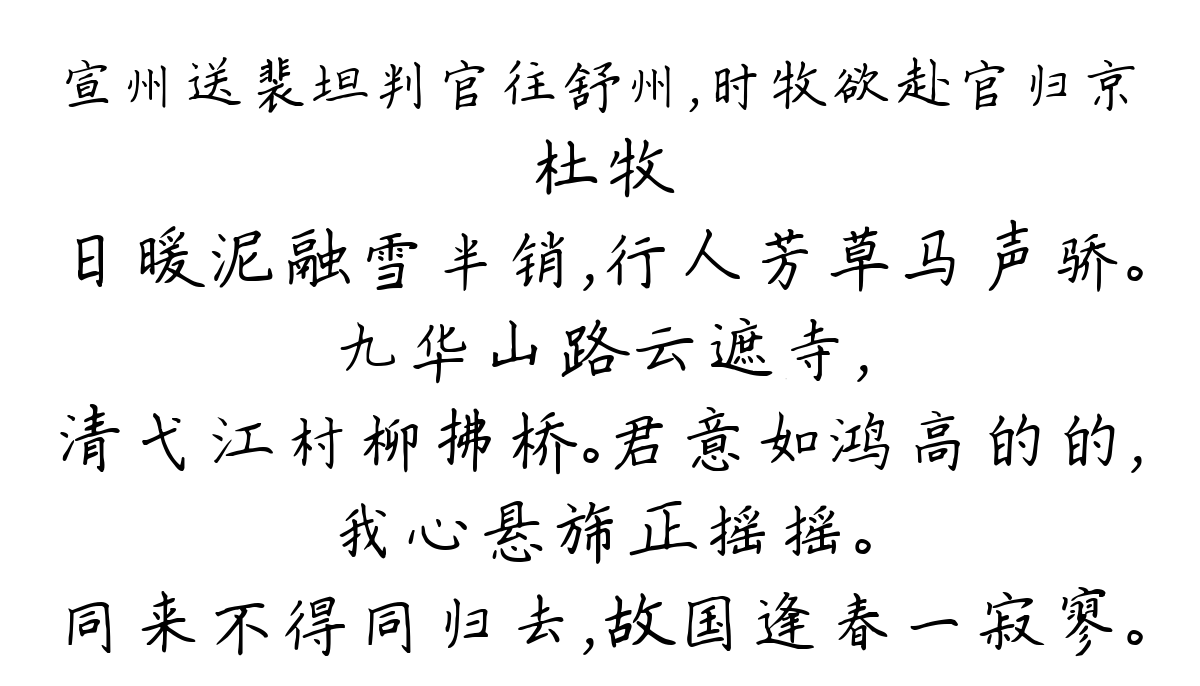 宣州送裴坦判官往舒州,时牧欲赴官归京
杜牧
日暖泥融雪半销,行人芳草马声骄。
九华山路云遮寺,
清弋江村柳拂桥。君意如鸿高的的,
我心悬旆正摇摇。
同来不得同归去,故国逢春一寂寥。